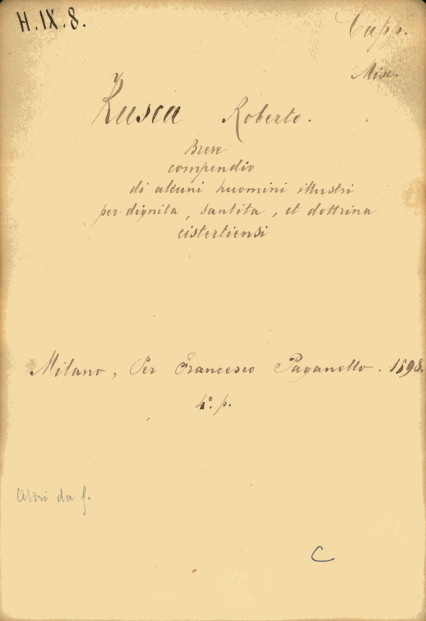 H.IX.8.
Capp.
Misc.
Rusca Roberto.
Breve
compendio
di alcuni huomini illustri
per dignita, santita, et dottrina
cistertiensi
Milano, Per Francesco Paganello. 1598.
4.° p.
da f.
C